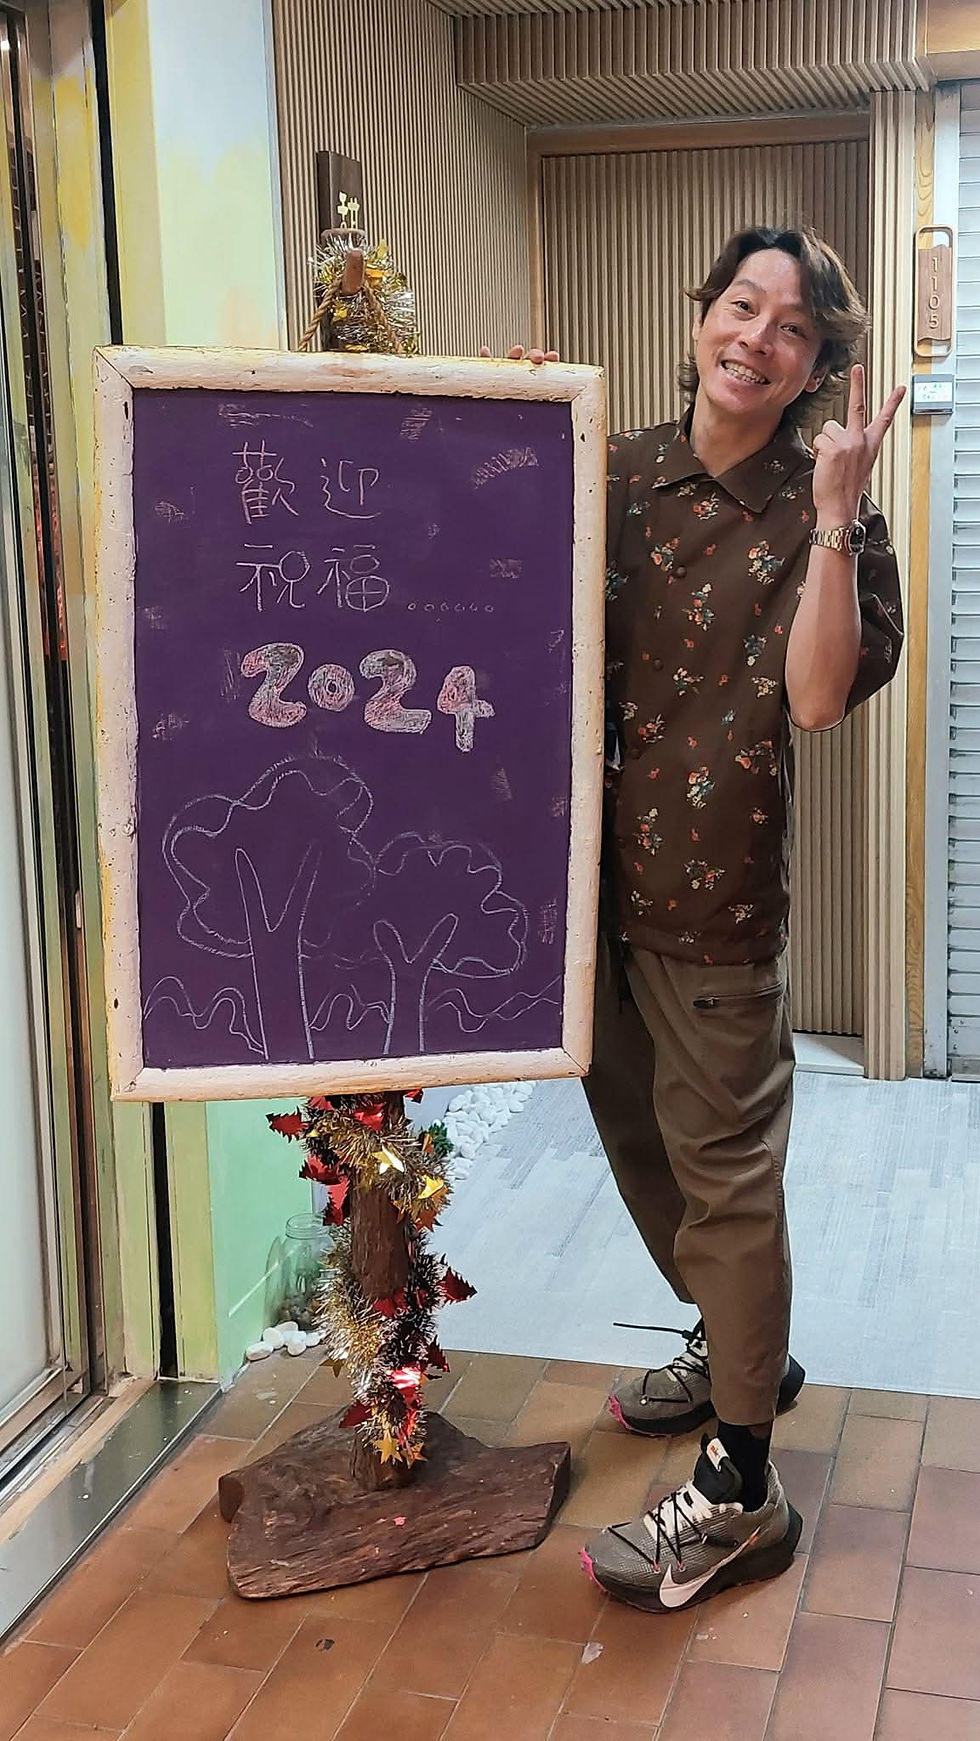 歡迎
祝福 。。。。。。
2024
1105